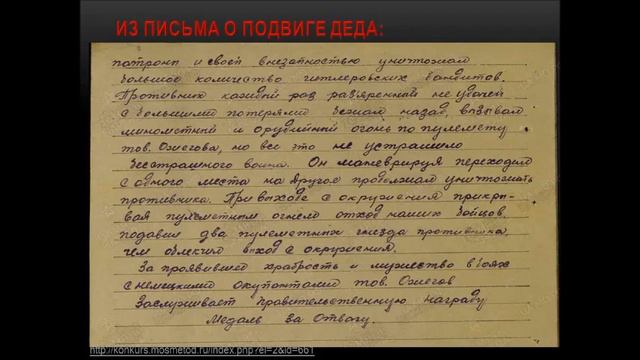 ИЗ ПИСЬМА О ПОДВИГЕ ДЕДА:
патроны и своей внезапностью уничтожал
большое количество гитлеровских бандитов.
Противник каждый раз разъяренный неудачей
с большими потерями бежал назад, вызывал
минометный и орудийный огонь по пулемету
тов. Ожегова, но все это не устрашило
бесстрашного воина. Он маневрируя переходил
с одного места на другое продолжал уничтожать
противника. При выходе с окружения прикры-
вая пулеметным огнем отход наших бойцов,
подавил два пулеметных гнезда противника,
чем облегчил выход с окружения.
За проявивший храбрость и мужество в боях
с немецкими окупантами тов. Ожегов
Заслуживает правительственную награду
Медаль За Отвагу.
http://konkurs.mosmetod.ru/index.php?el=2&id=661